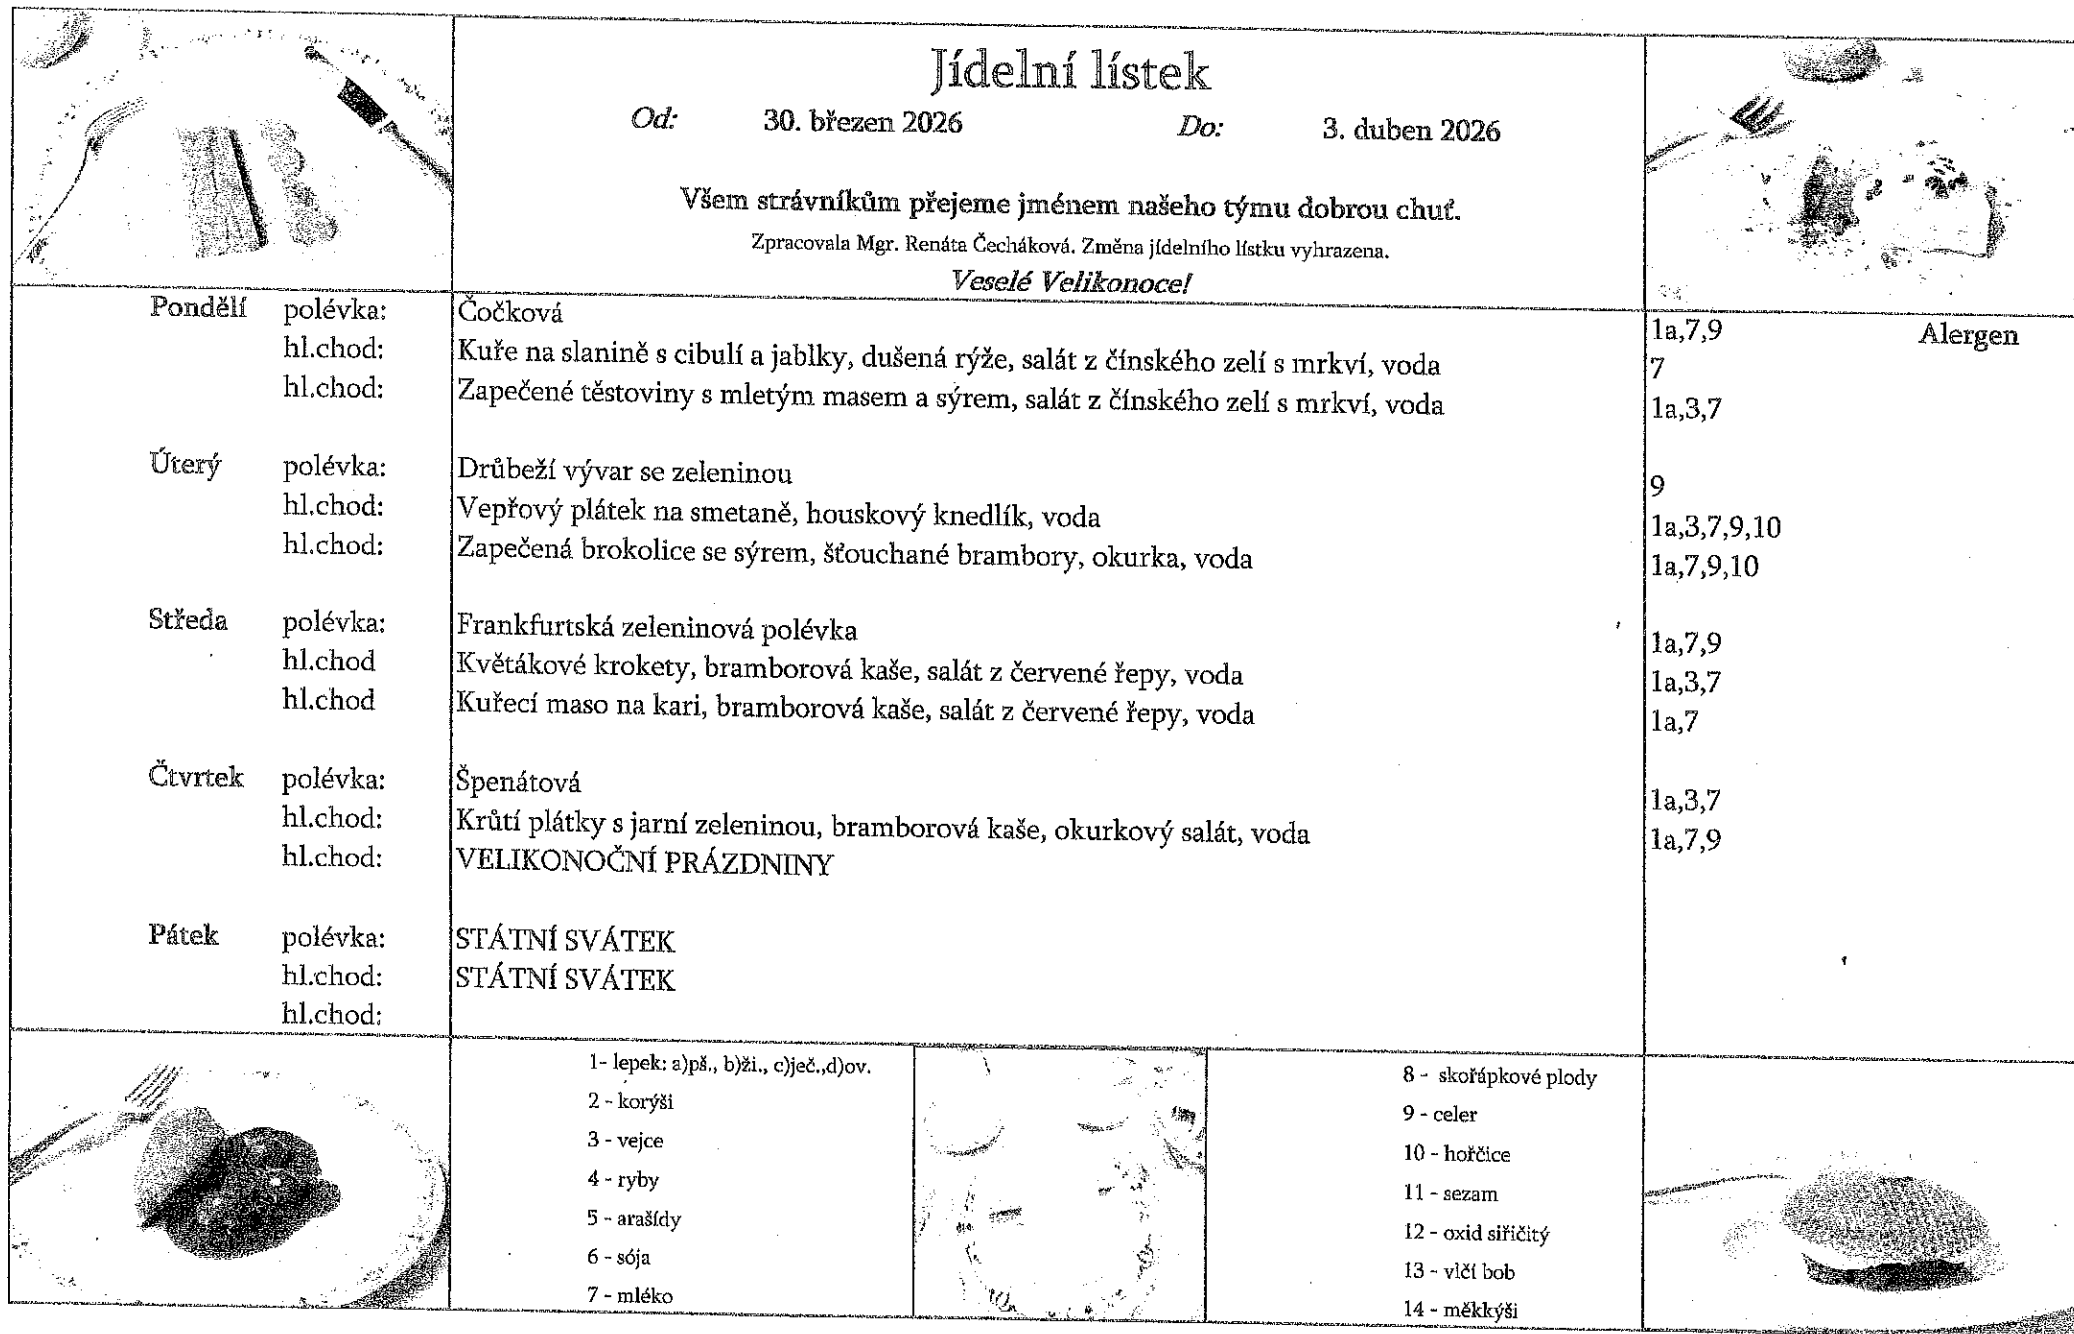 Jídelní lístek
Od: 30. březen 2026 Do: 3. duben 2026
Všem strávníkům přejeme jménem našeho týmu dobrou chuť.
Zpracovala Mgr. Renáta Čecháková. Změna jídelního lístku vyhrazena.
Veselé Velikonoce!
Alergen
Pondělí polévka: Čočková 1a,7,9
hl.chod: Kuře na slanině s cibulí a jablky, dušená rýže, salát z čínského zelí s mrkví, voda 7
hl.chod: Zapečené těstoviny s mletým masem a sýrem, salát z čínského zelí s mrkví, voda 1a,3,7
Úterý polévka: Drůbeží vývar se zeleninou 9
hl.chod: Vepřový plátek na smetaně, houskový knedlík, voda 1a,3,7,9,10
hl.chod: Zapečená brokolice se sýrem, šťouchané brambory, okurka, voda 1a,7,9,10
Středa polévka: Frankfurtská zeleninová polévka 1a,7,9
hl.chod Květákové krokety, bramborová kaše, salát z červené řepy, voda 1a,3,7
hl.chod Kuřecí maso na kari, bramborová kaše, salát z červené řepy, voda 1a,7
Čtvrtek polévka: Špenátová 1a,3,7
hl.chod: Krůtí plátky s jarní zeleninou, bramborová kaše, okurkový salát, voda 1a,7,9
hl.chod: VELIKONOČNÍ PRÁZDNINY
Pátek polévka: STÁTNÍ SVÁTEK
hl.chod: STÁTNÍ SVÁTEK
hl.chod:
1- lepek: a)pš., b)ži., c)ječ.,d)ov.
2 - korýši
3 - vejce
4 - ryby
5 - arašídy
6 - sója
7 - mléko
8 - skořápkové plody
9 - celer
10 - hořčice
11 - sezam
12 - oxid siřičitý
13 - vlčí bob
14 - měkkýši